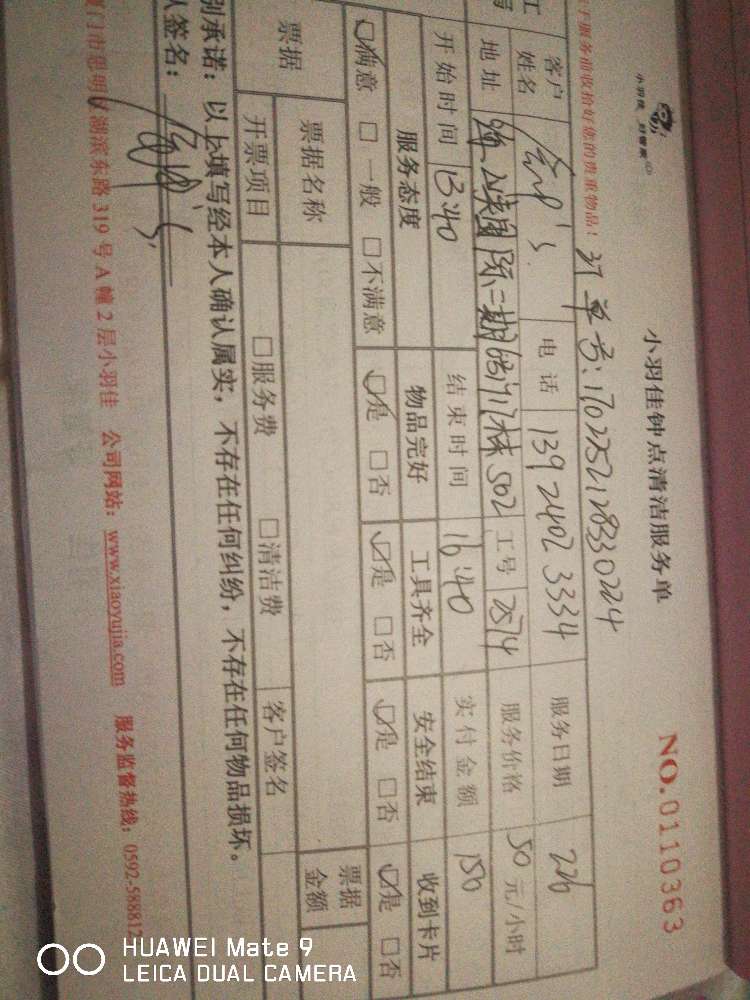 小羽佳 好管家
小羽佳钟点清洁服务单
NO.0110363
于服务前收拾好您的贵重物品！
订单号：1702252128330224
客户姓名 电话 139 2402 3334 服务日期 226
地址 国际二期 502 工号 2574 服务价格 50 元/小时
开始时间 13:40 结束时间 16:40 实付金额 150
服务态度 物品完好 工具齐全 安全结束 收到卡片
☑满意 □一般 □不满意 ☑是 □否 ☑是 □否 ☑是 □否 ☑是 □否
票据 票据名称 票据金额
开票项目 □服务费 □清洁费 客户签名
别承诺：以上填写经本人确认属实，不存在任何纠纷，不存在任何物品损坏。
人签名：
厦门市思明区湖滨东路 319 号 A 幢 2 层小羽佳 公司网站：www.xiaoyujia.com 服务监督热线：0592-588812
HUAWEI Mate 9
LEICA DUAL CAMERA